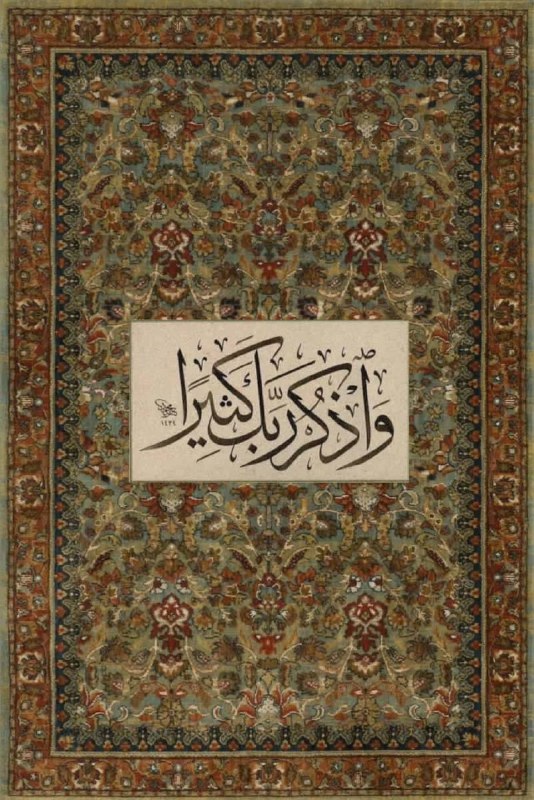 وَاذْكُر رَّبَّكَ كَثِيرًا
١٤٣٤